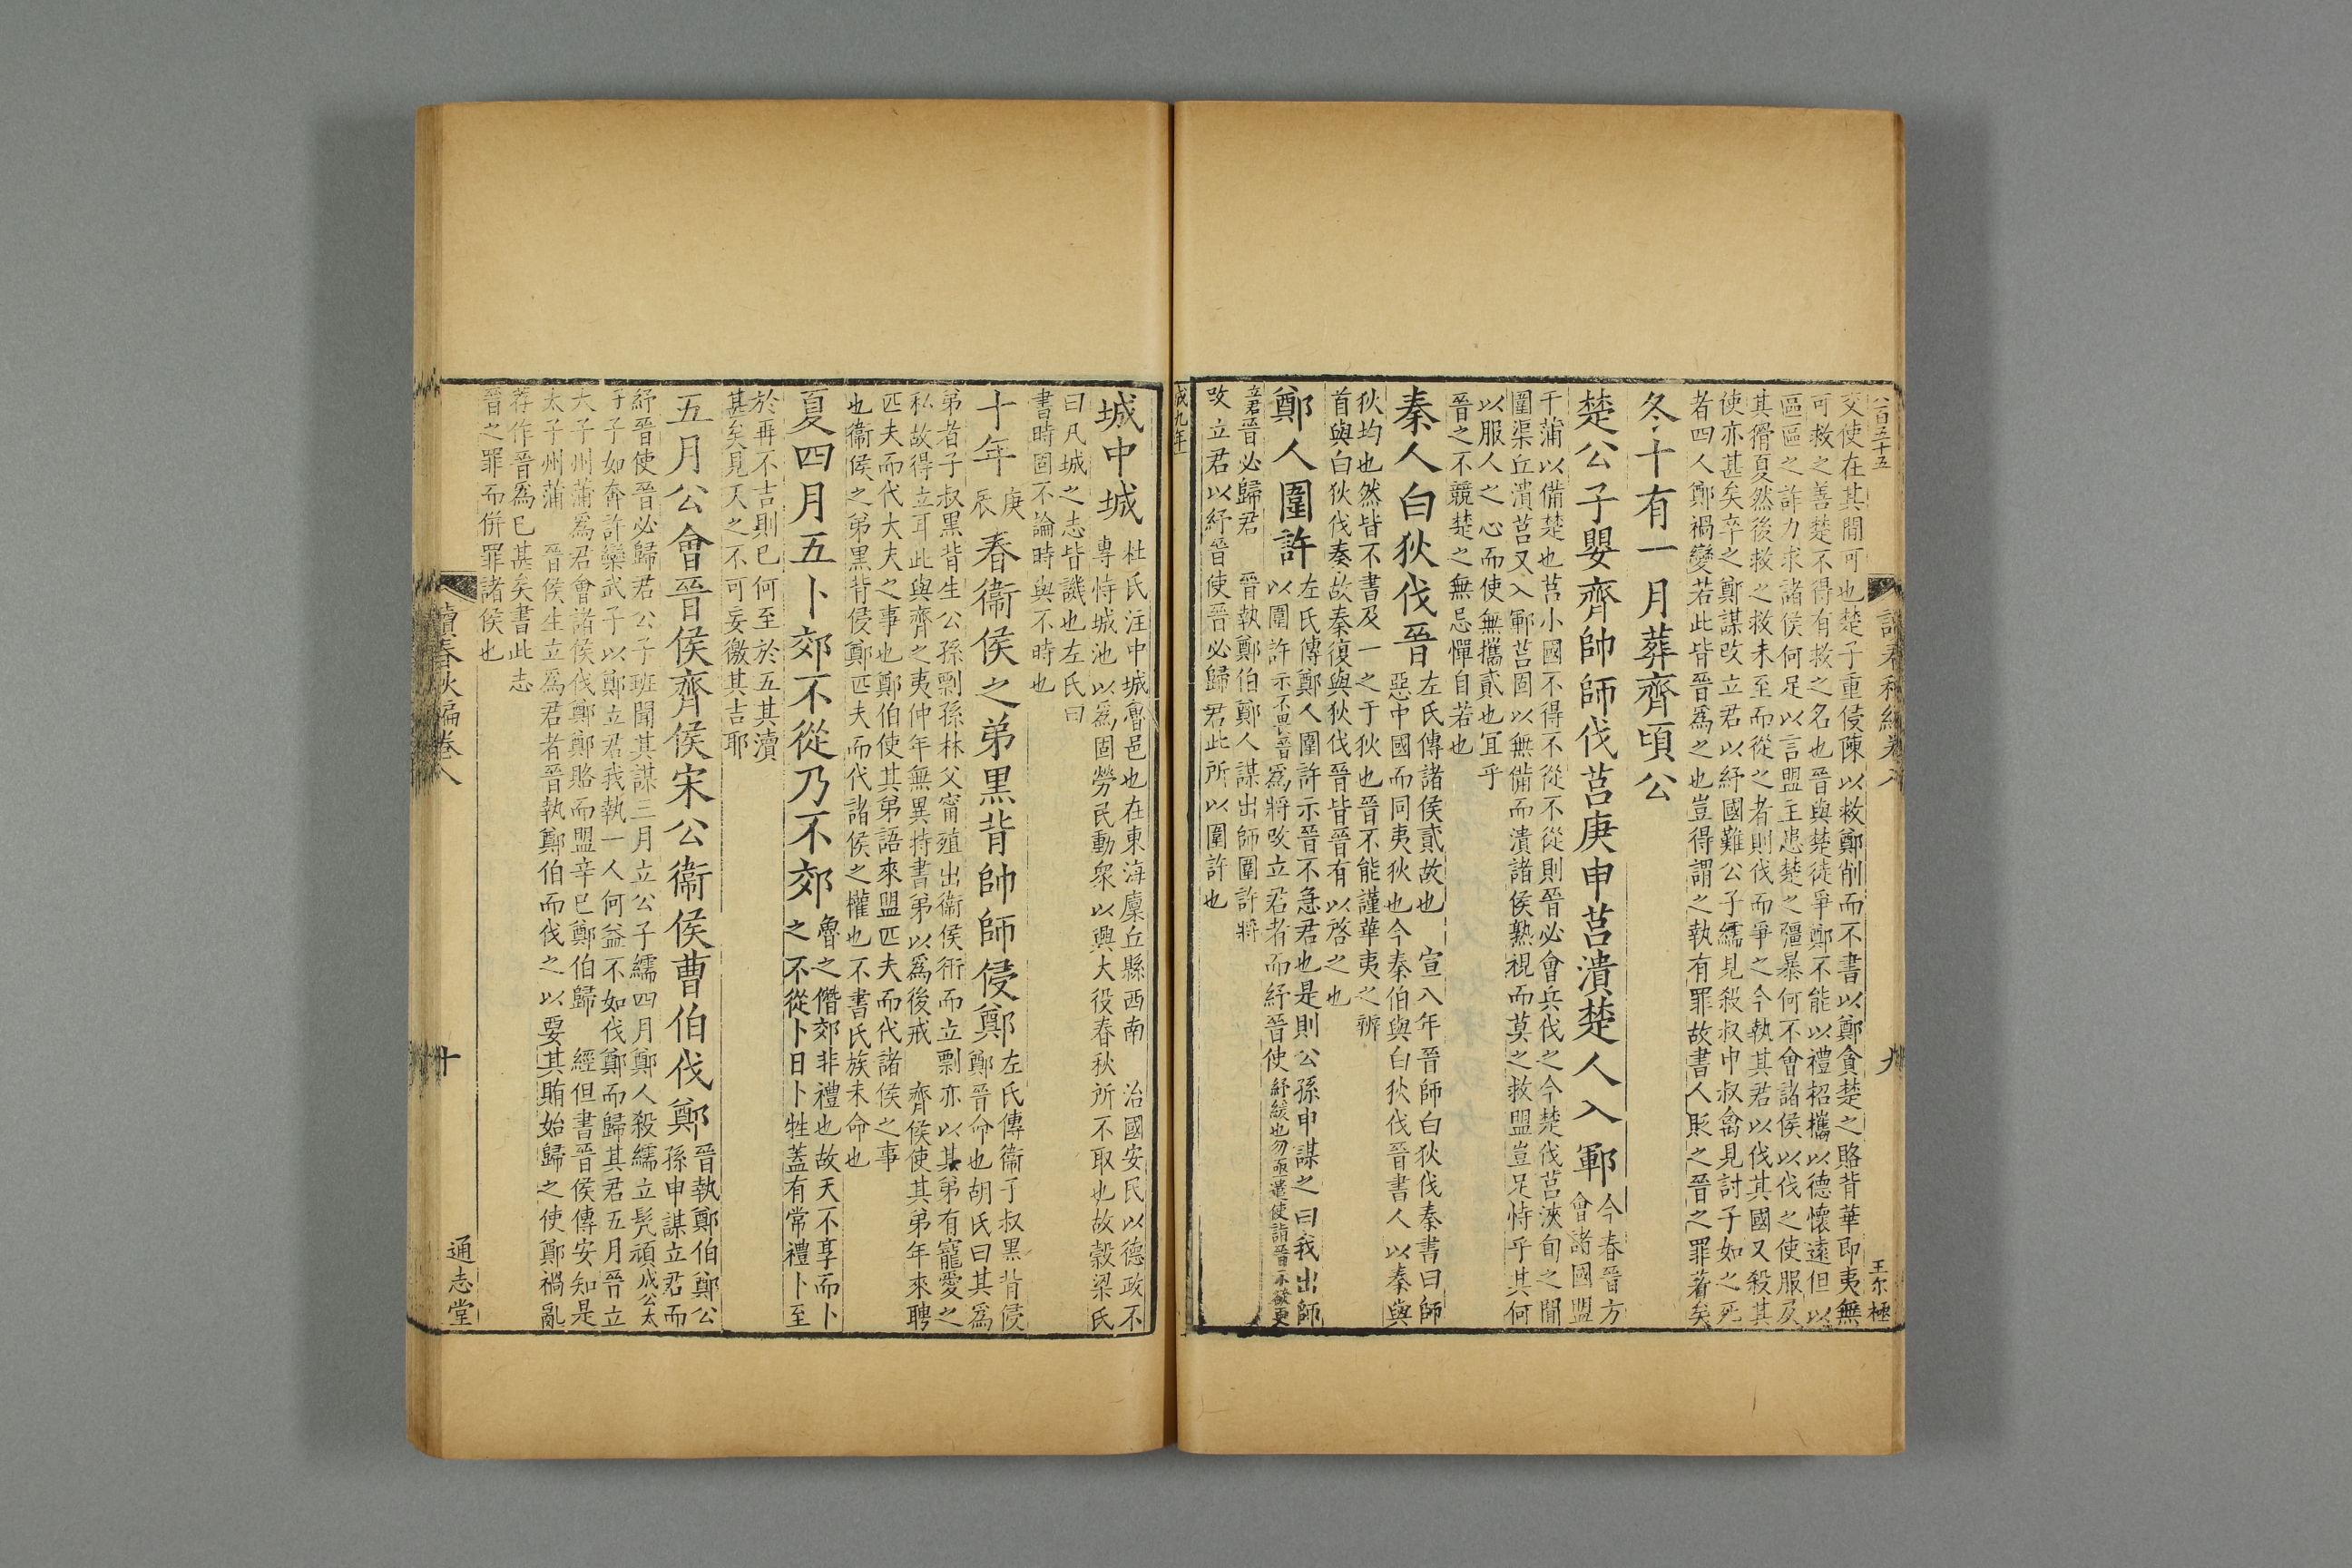 八百五十五
讀春秋編卷八
九
王尔極
交使在其間可也楚子重侵陳以救鄭削而不書以鄭貪楚之賂背華即夷無
可救之善楚不得有救之名也晉與楚徒爭鄭不能以禮招攜以德懷遠但以
區區之詐力求諸侯何足以言盟主患楚之彊暴何不會諸侯以伐之使服及
其猾夏然後救之救未至而從之者則伐而爭之今執其君以伐其國又殺其
使亦甚矣卒之鄭謀改立君以紓國難公子繻見殺叔申叔禽見討子如之死
者四人鄭禍變若此皆晉爲之也豈得謂之執有罪故書人貶之晉之罪著矣
冬十有一月葬齊頃公
楚公子嬰齊帥師伐莒庚申莒潰楚人入鄆
今春晉方
會諸國盟
于蒲以備楚也莒小國不得不從不從則晉必會兵伐之今楚伐莒浹旬之間
圍渠丘潰莒又入鄆莒固以無備而潰諸侯熟視而莫之救盟豈足恃乎其何
以服人之心而使無攜貳也宜乎
晉之不競楚之無忌憚自若也
秦人白狄伐晉
左氏傳諸侯貳故也　宣八年晉師白狄伐秦書曰師
惡中國而同夷狄也今秦伯與白狄伐晉書人以秦與
狄均也然皆不書及一之于狄也晉不能謹華夷之辨
首與白狄伐秦故秦復與狄伐晉皆晉有以啓之也
鄭人圍許
左氏傳鄭人圍許示晉不急君也是則公孫申謀之曰我出師
以圍許示不畏晉爲將改立君者而紓晉使紓緩也勿亟遣使詣晉示欲更
立君晉必歸君　晉執鄭伯鄭人謀出師圍許將
改立君以紓晉使晉必歸君此所以圍許也
成九年
城中城
杜氏注中城魯邑也在東海廩丘縣西南　治國安民以德政不
專恃城池以爲固勞民動衆以興大役春秋所不取也故穀梁氏
曰凡城之志皆譏也左氏曰
書時固不論時與不時也
十年
庚
辰
春衞侯之弟黑背帥師侵鄭
左氏傳衞子叔黑背侵
鄭晉命也胡氏曰其爲
弟者子叔黑背生公孫剽孫林父甯殖出衞侯衎而立剽亦以其弟有寵愛之
私故得立耳此與齊之夷仲年無異特書弟以爲後戒　齊侯使其弟年來聘
匹夫而代大夫之事也鄭伯使其弟語來盟匹夫而代諸侯之事
也衞侯之弟黑背侵鄭匹夫而代諸侯之權也不書氏族未命也
夏四月五卜郊不從乃不郊
魯之僭郊非禮也故天不享而卜
之不從卜日卜牲蓋有常禮卜至
於再不吉則已何至於五其瀆
甚矣見天之不可妄徼其吉耶
五月公會晉侯齊侯宋公衞侯曹伯伐鄭
晉執鄭伯鄭公
孫申謀立君而
紓晉使晉必歸君公子班聞其謀三月立公子繻四月鄭人殺繻立髠頑成公太
子子如奔許欒武子以鄭立君我執一人何益不如伐鄭而歸其君五月晉立
大子州蒲爲君會諸侯伐鄭鄭賂而盟辛巳鄭伯歸　經但書晉侯傳安知是
太子州蒲　晉侯生立爲君者晉執鄭伯而伐之以要其賄始歸之使鄭禍亂
荐作晉爲已甚矣書此志
晉之罪而併罪諸侯也
讀春秋編卷八
十
通志堂